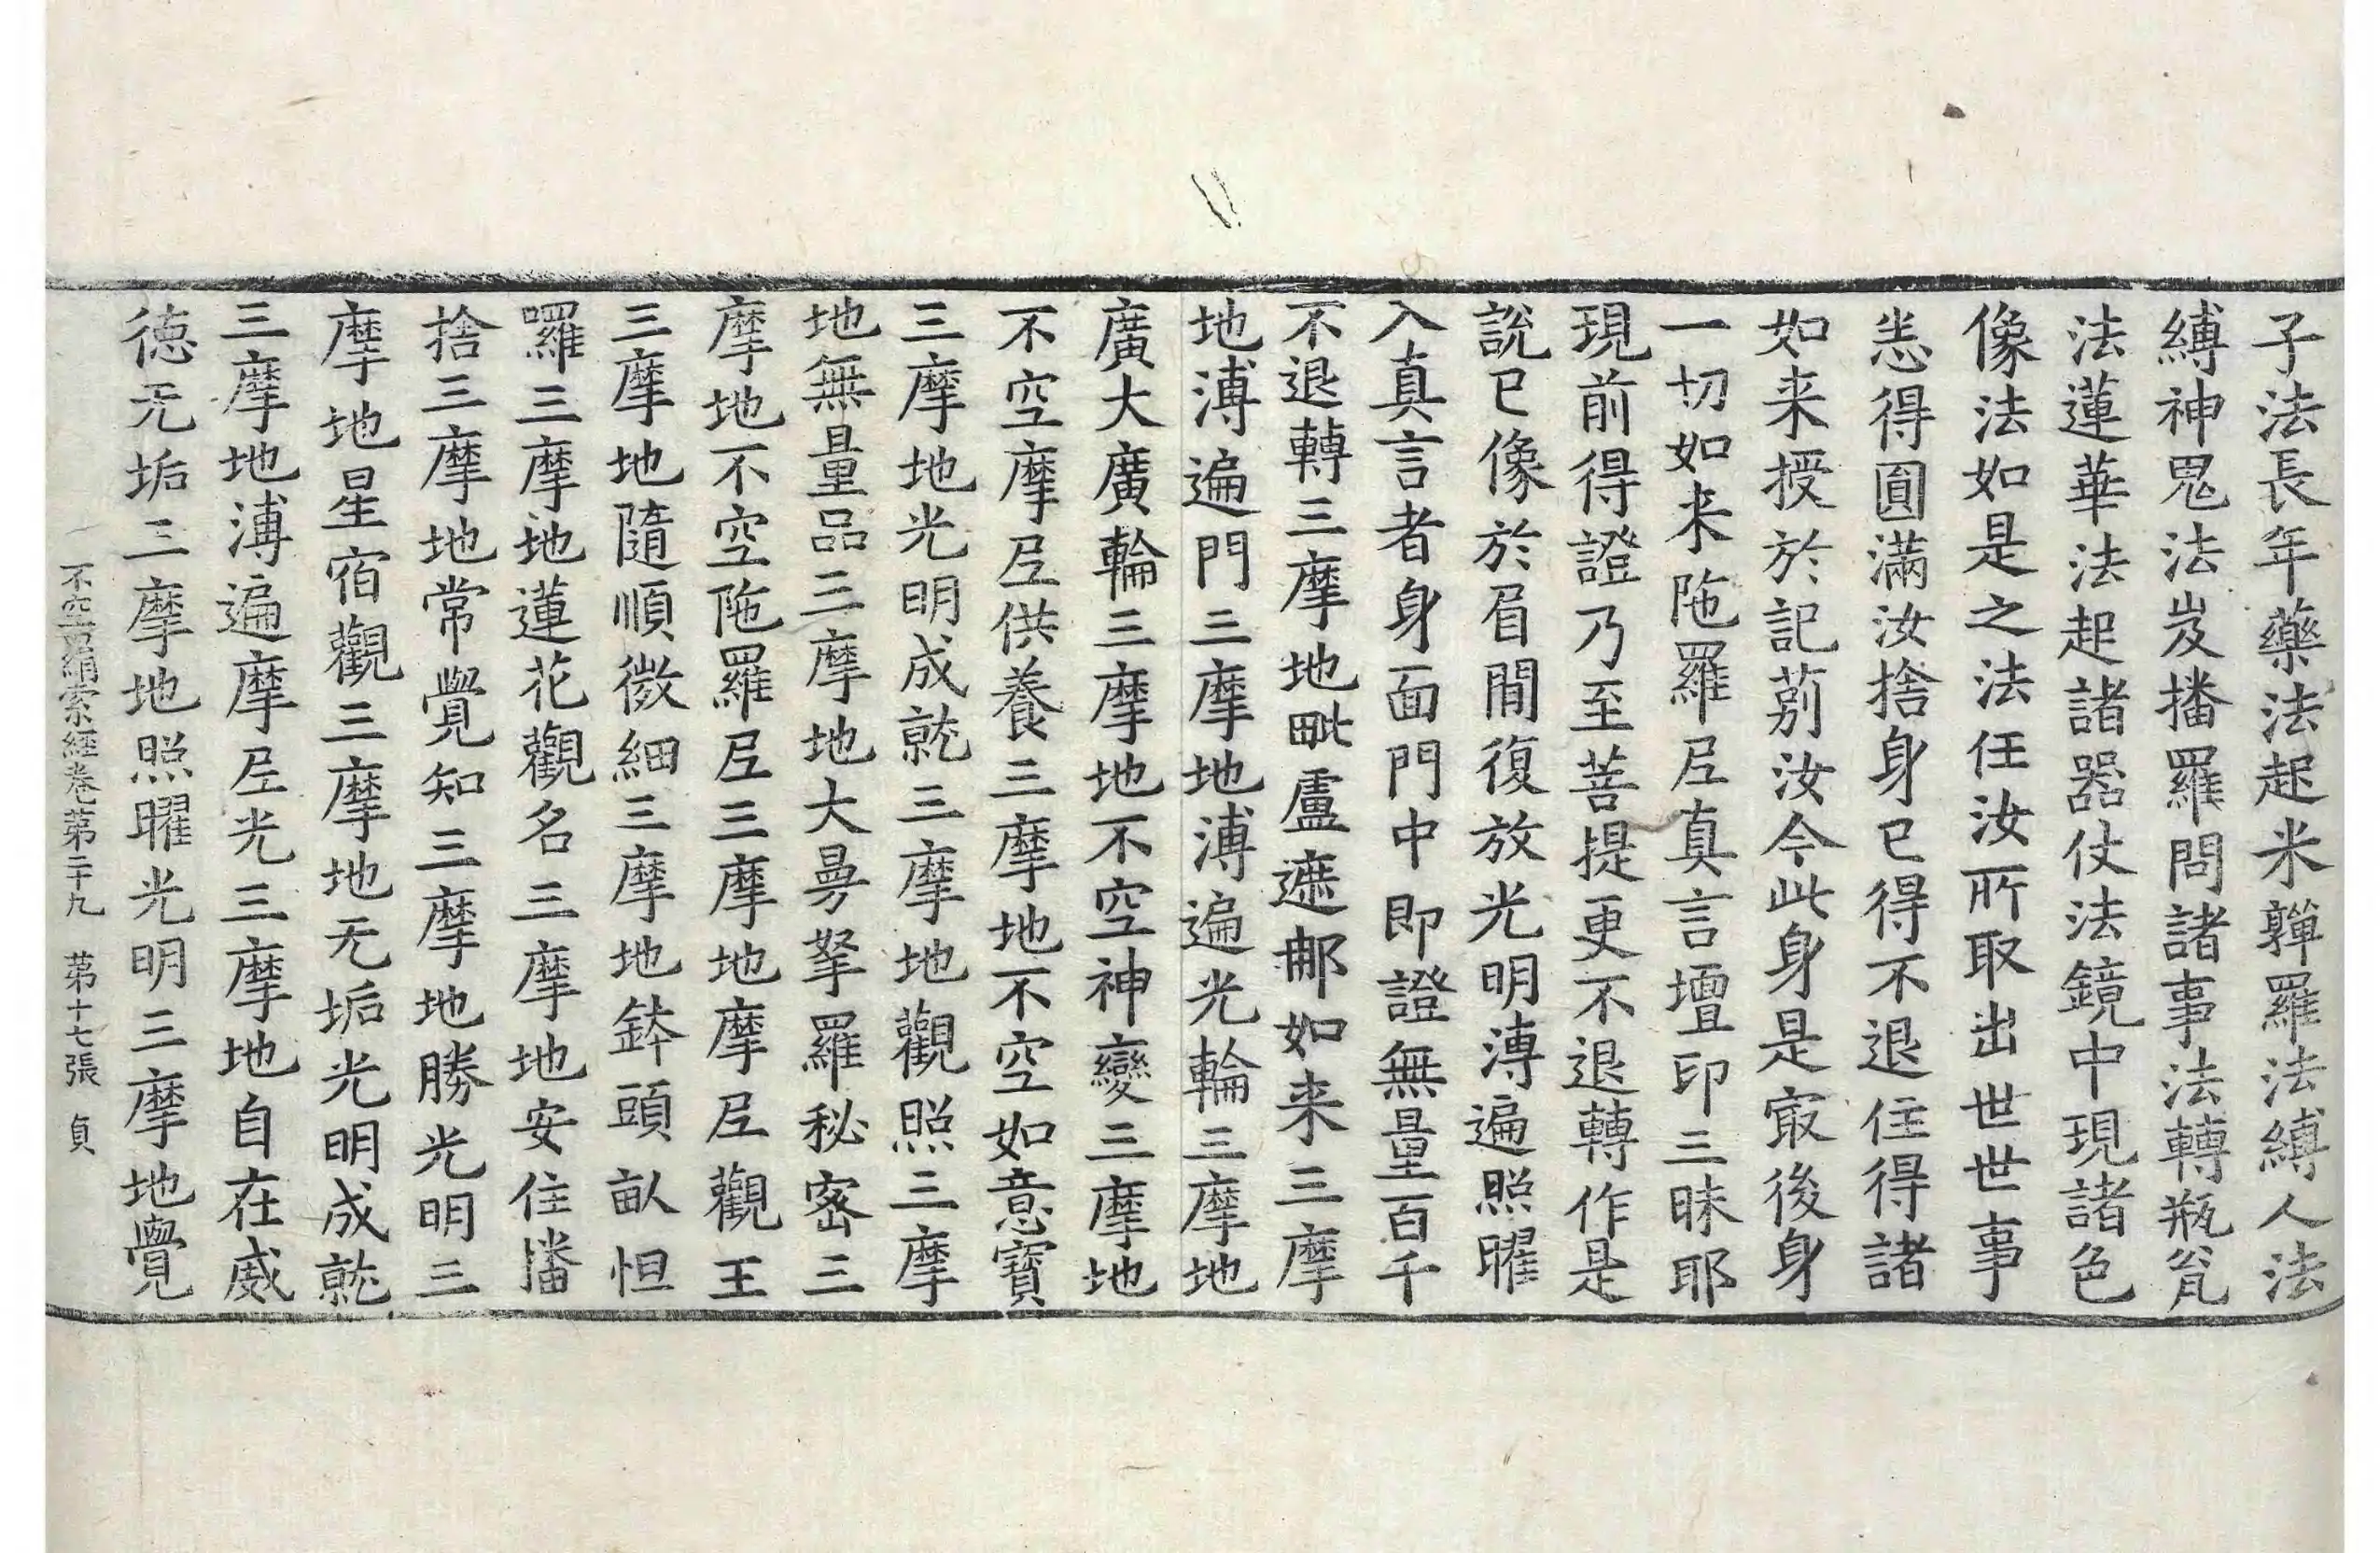 子法長年藥法起米軃羅法縛人法
縛神鬼法岌播羅問諸事法轉瓶瓮
法蓮華法起諸器仗法鏡中現諸色
像法如是之法任汝所取出世世事
恙得圓滿汝捨身已得不退住得諸
如来授於記莂汝今此身是㝡後身
一切如来陁羅𡰱真言壇印三昧耶
現前得證乃至菩提更不退轉作是
說已像於眉間復放光明溥遍照曜
入真言者身面門中即證無量百千
不退轉三摩地毗盧遮那如来三摩
地溥遍門三摩地溥遍光輪三摩地
廣大廣輪三摩地不空神變三摩地
不空摩𡰱供養三摩地不空如意寶
三摩地光明成就三摩地觀照三摩
地無量品三摩地大曼拏羅秘密三
摩地不空陁羅𡰱三摩地摩𡰱觀王
三摩地隨順微細三摩地鉢頭畝怛
囉三摩地蓮花觀名三摩地安住播
捨三摩地常覺知三摩地勝光明三
摩地星宿觀三摩地无垢光明成就
三摩地溥遍摩𡰱光三摩地自在威
德无垢三摩地照曜光明三摩地覺
不空羂索經卷第二十九 第十七張 貞